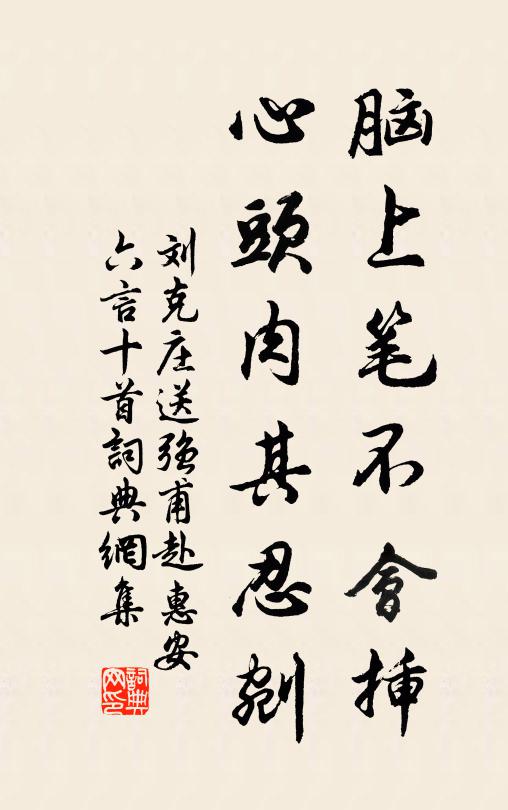 脑上笔不會挿
心頭肉其忍剜
刘克庄送强甫赴惠安
六言十首詞典網集
詞典网印